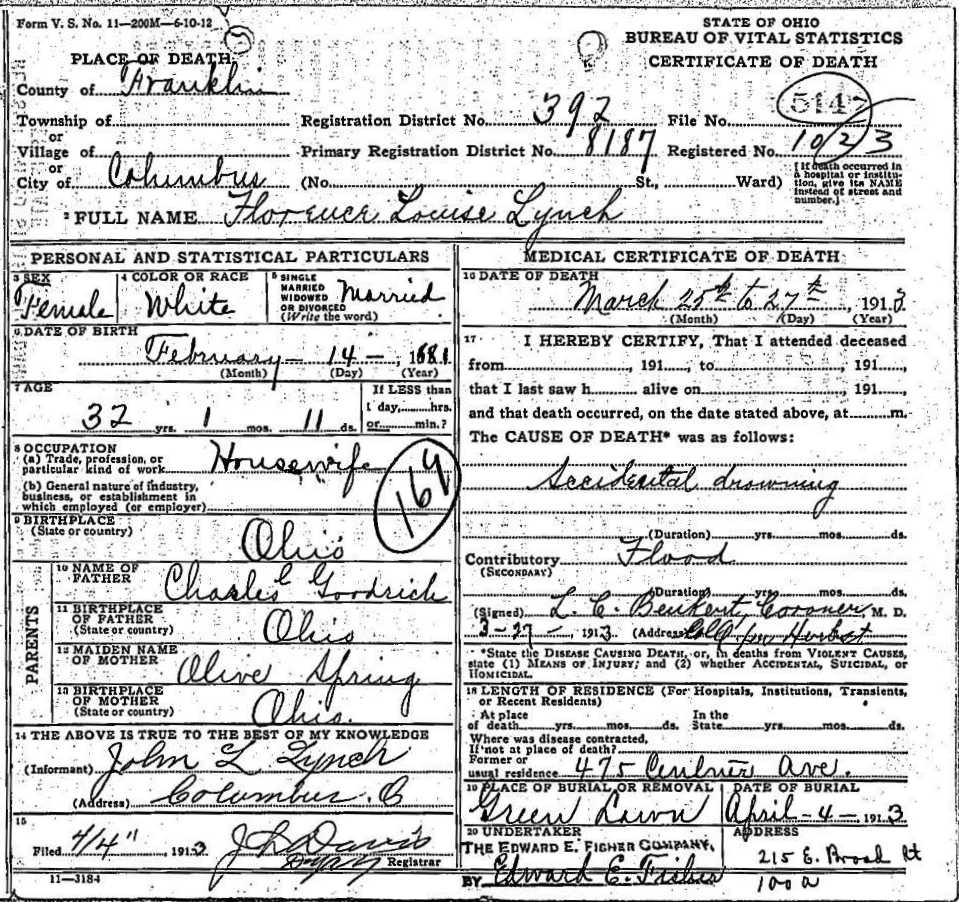 Form V. S. No. 11—200M—6-10-12
STATE OF OHIO
BUREAU OF VITAL STATISTICS
CERTIFICATE OF DEATH
PLACE OF DEATH
County of Franklin
Township of
or
Village of
or
City of Columbus
Registration District No. 392
File No.
Primary Registration District No. 8187
Registered No. 1023
(No. St., Ward)
[If death occurred in a hospital or institution, give its NAME instead of street and number.]
2 FULL NAME Florence Louise Lynch
PERSONAL AND STATISTICAL PARTICULARS
3 SEX
Female
4 COLOR OR RACE
White
5 SINGLE
MARRIED
WIDOWED
OR DIVORCED
(Write the word)
Married
6 DATE OF BIRTH
February — 14 —, 1881
(Month) (Day) (Year)
7 AGE
32 yrs. 1 mos. 11 ds.
If LESS than
1 day, hrs.
or min.?
8 OCCUPATION
(a) Trade, profession, or
particular kind of work Housewife
(b) General nature of industry,
business, or establishment in
which employed (or employer)
164
9 BIRTHPLACE
(State or country)
Ohio
PARENTS
10 NAME OF
FATHER
Charles C Goodrich
11 BIRTHPLACE
OF FATHER
(State or country)
Ohio
12 MAIDEN NAME
OF MOTHER
Olive Spring
13 BIRTHPLACE
OF MOTHER
(State or country)
Ohio.
14 THE ABOVE IS TRUE TO THE BEST OF MY KNOWLEDGE
(Informant) John L Lynch
(Address) Columbus. O
15
Filed 4/4", 1913 J L Davis
Registrar
11—3184
MEDICAL CERTIFICATE OF DEATH
16 DATE OF DEATH
March 25th to 27th, 1913
(Month) (Day) (Year)
17 I HEREBY CERTIFY, That I attended deceased
from , 191 , to , 191 ,
that I last saw h alive on , 191 ,
and that death occurred, on the date stated above, at m.
The CAUSE OF DEATH* was as follows:
Accidental drowning
(Duration) yrs. mos. ds.
Contributory Flood
(SECONDARY)
(Duration) yrs. mos. ds.
(Signed) L. C. Beukert, Coroner, M. D.
3-27-, 1913 (Address)
*State the DISEASE CAUSING DEATH, or, in deaths from VIOLENT CAUSES,
state (1) MEANS OF INJURY; and (2) whether ACCIDENTAL, SUICIDAL, or
HOMICIDAL.
18 LENGTH OF RESIDENCE (For Hospitals, Institutions, Transients,
or Recent Residents)
At place
of death yrs. mos. ds.
In the
State yrs. mos. ds.
Where was disease contracted,
If not at place of death?
Former or
usual residence 475 Ave.
19 PLACE OF BURIAL OR REMOVAL
Green Lawn
DATE OF BURIAL
April - 4 -, 1913
20 UNDERTAKER
THE EDWARD E. FISHER COMPANY,
BY Edward E. Fisher
ADDRESS
215 E. Broad St